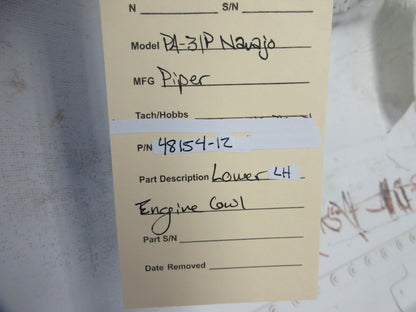 N S/N
Model PA-31P Navajo
MFG Piper
Tach/Hobbs
P/N 48154-12
Part Description Lower LH
Engine Cowl
Part S/N
Date Removed